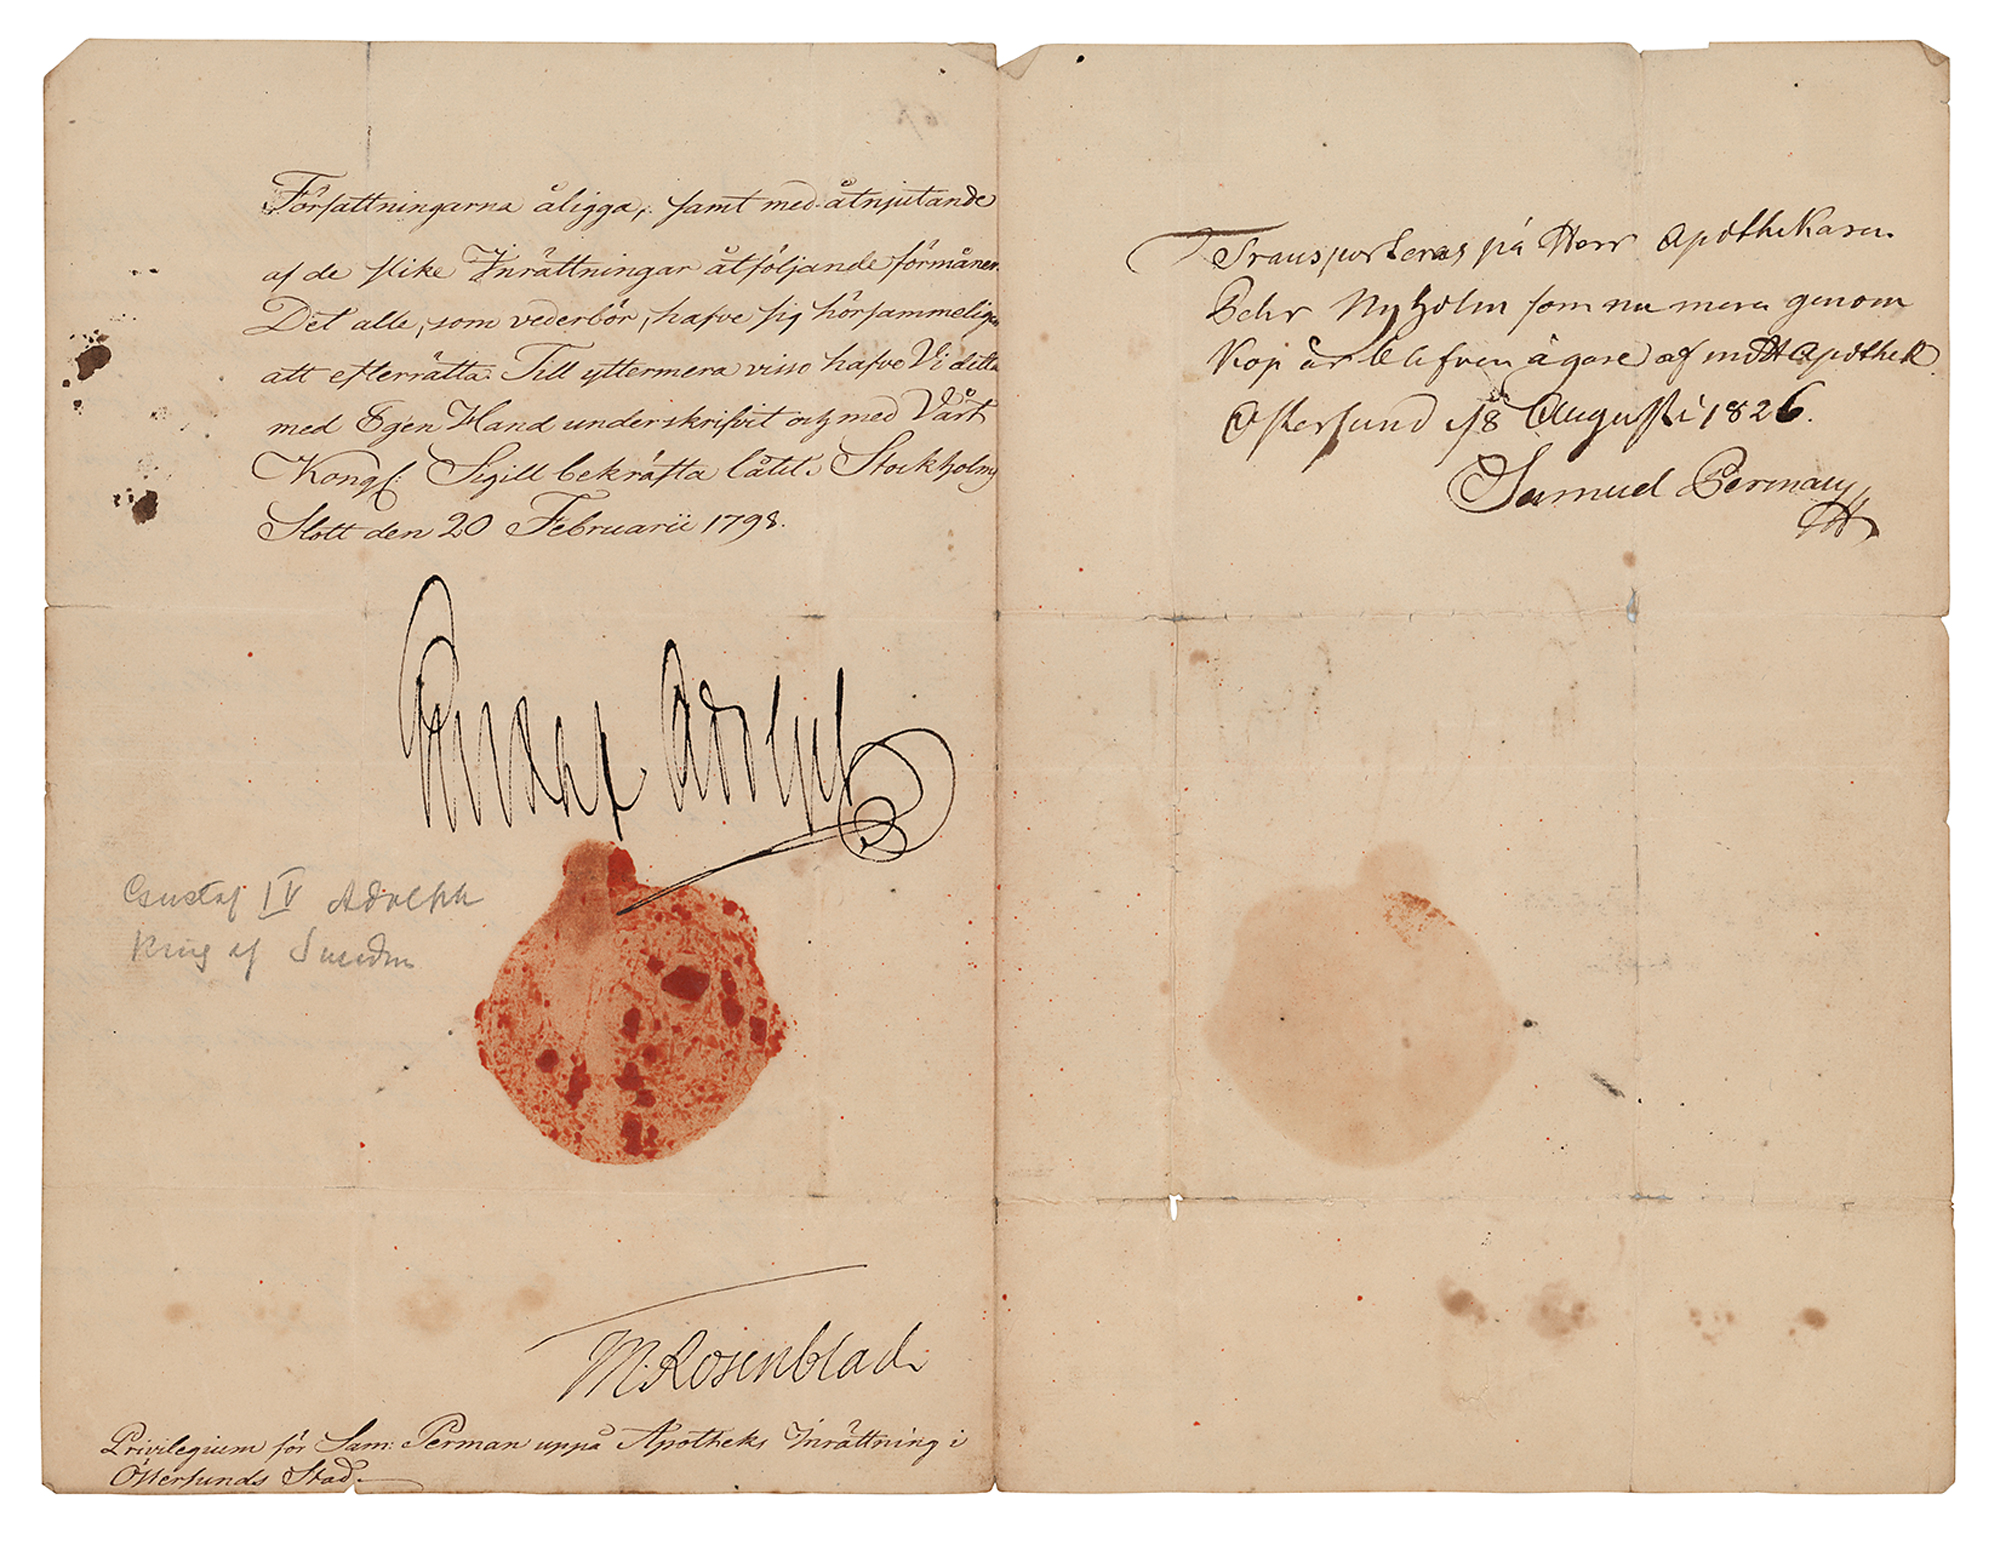 Författningarna åligga, samt med åtnjutande
af de slike Inrättningar åtföljande förmåner.
Det alle, som vederbör, hafve sig hörsammeligen
att efterrätta. Till yttermera visso hafve Vi detta
med Egen Hand underskrifvit och med Vårt
Kongl: Sigill bekräfta låtit. Stockholms
Slott den 20 Februarii 1798.
Gustaf Adolph
Gustaf IV Adolph
King of Sweden
M. Rosenblad
Privilegium för Sam: Perman uppå Apotheks Inrättning i
Östersunds Stad.
Transporteras på Herr Apothekaren
Pehr Nyholm som nu mera genom
Kop är blefven ägare af mitt Apothek.
Ostersund d 18 Augusti 1826.
Samuel Perman